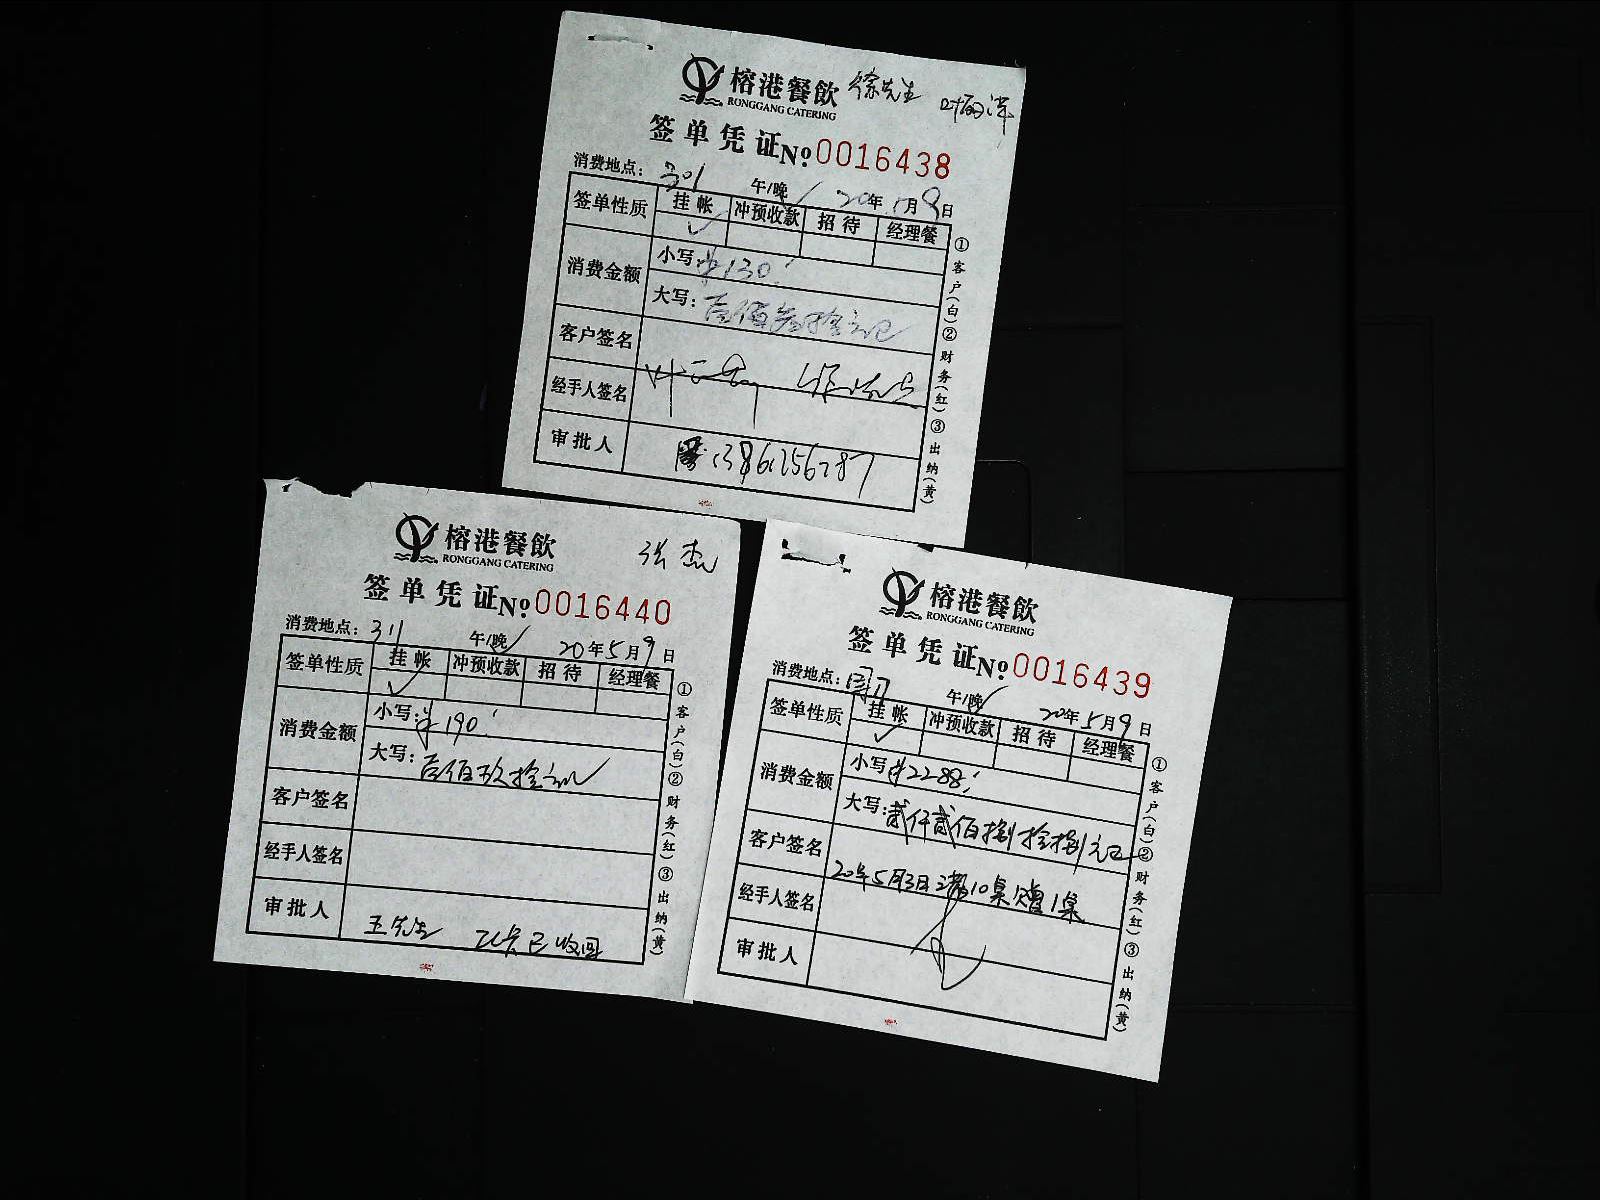 榕港餐飲 徐先生
RONGGANG CATERING
签单凭证 №0016438
消费地点: 301 午/晚 20年 月9日
签单性质 挂帐 冲预收款 招待 经理餐
✓
消费金额 小写: ¥130
大写: 壹佰叁拾元正
客户签名
经手人签名
审批人
①客户(白)②财务(红)③出纳(黄)
榕港餐飲 张杰
RONGGANG CATERING
签单凭证 №0016440
消费地点: 311 午/晚 20年5月9日
签单性质 挂帐 冲预收款 招待 经理餐
✓
消费金额 小写: ¥190
大写: 壹佰玖拾元
客户签名
经手人签名
审批人 王先生 已收回
①客户(白)②财务(红)③出纳(黄)
榕港餐飲
RONGGANG CATERING
签单凭证 №0016439
消费地点: 午/晚 20年5月9日
签单性质 挂帐 冲预收款 招待 经理餐
✓
消费金额 小写 ¥2288
大写: 贰仟贰佰捌拾捌元正
客户签名
20年5月3日 满10桌赠1桌
经手人签名
审批人
①客户(白)②财务(红)③出纳(黄)